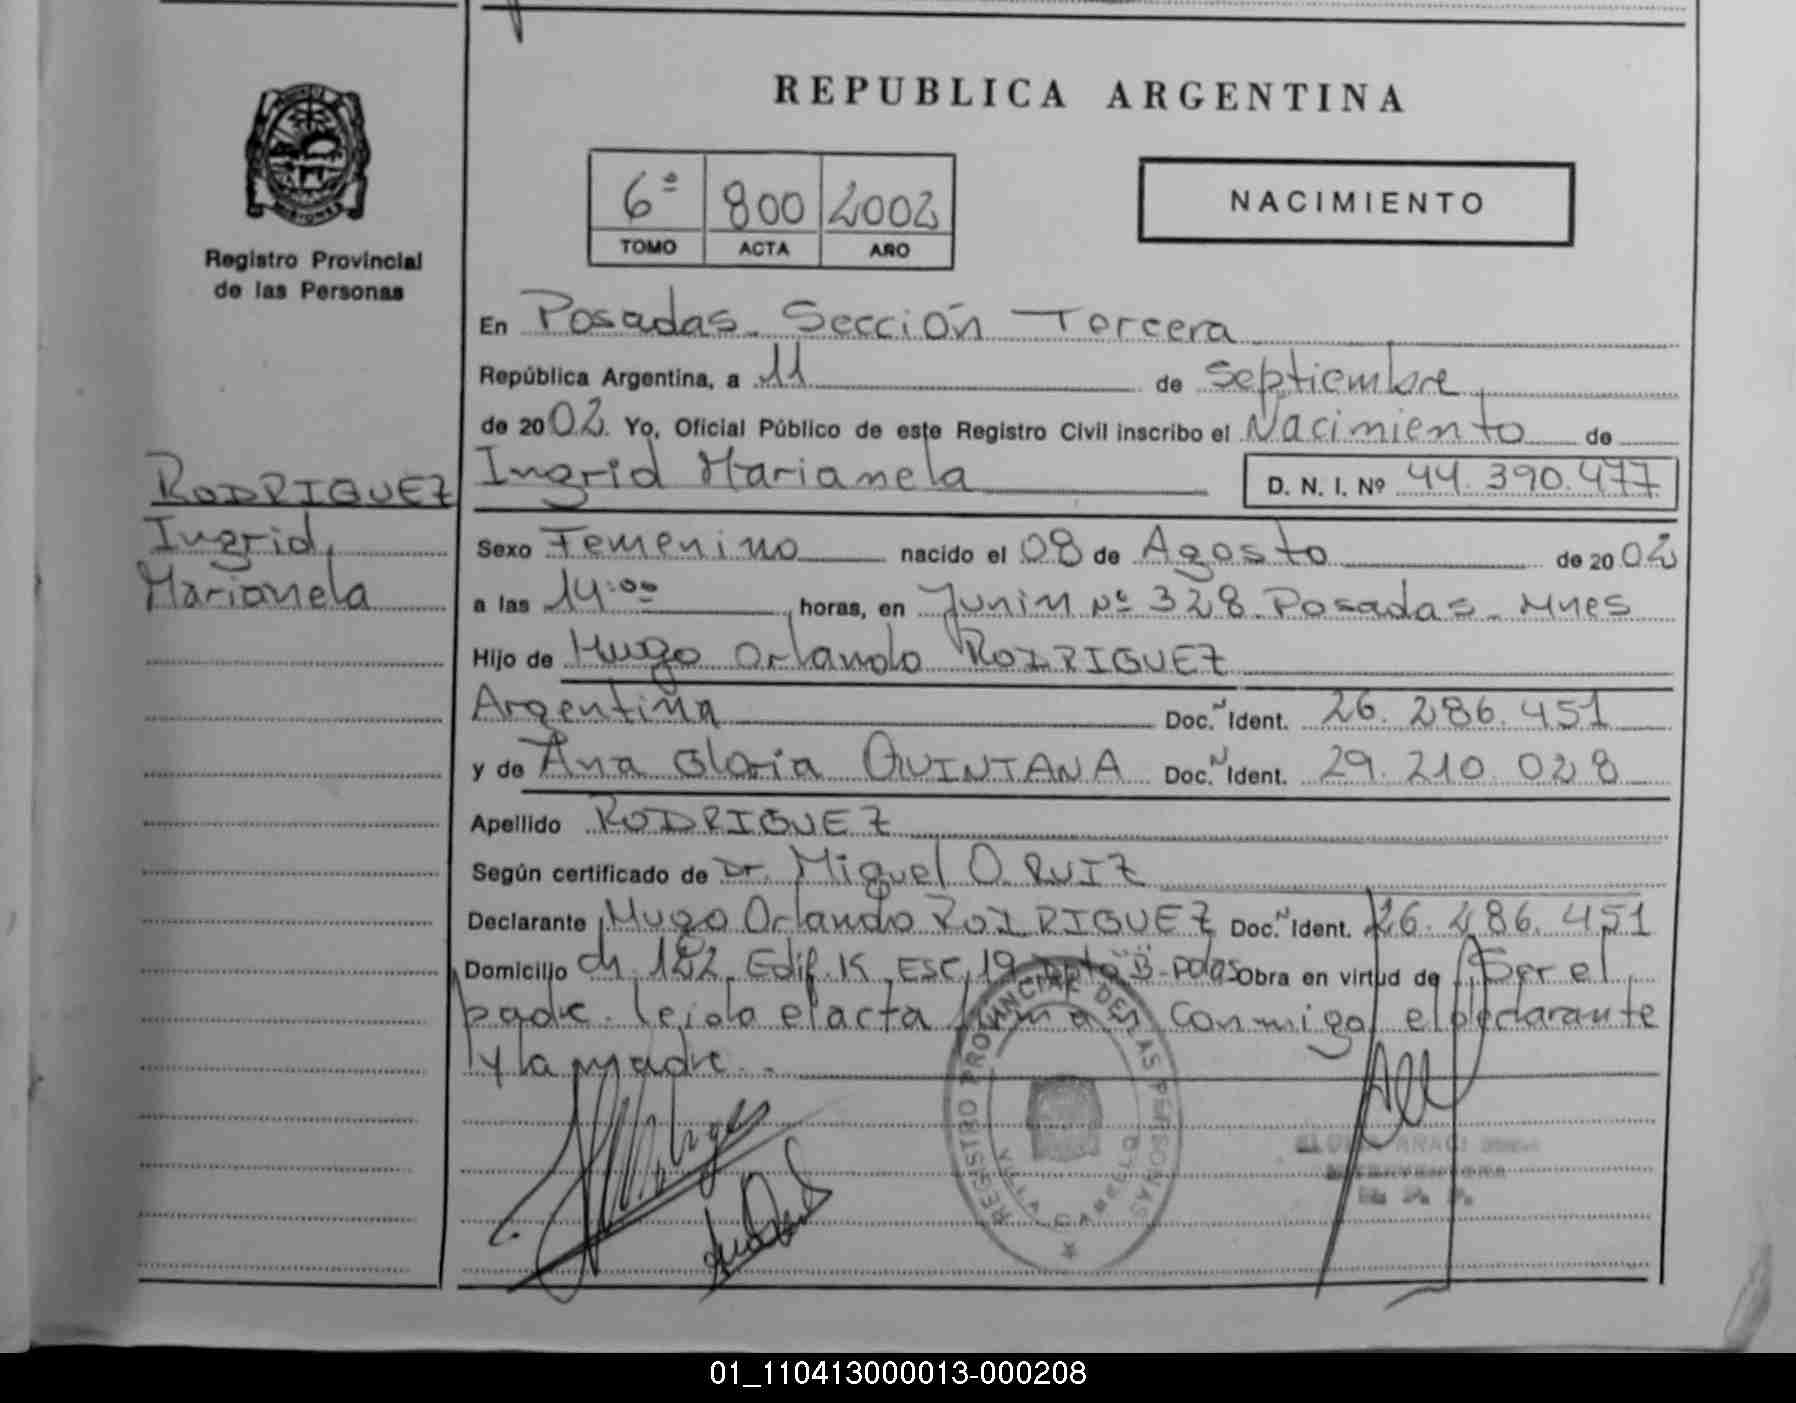 REPUBLICA ARGENTINA
6ª 800 2002
TOMO ACTA AÑO
NACIMIENTO
MISIONES
Registro Provincial
de las Personas
RODRIGUEZ
Ingrid
Marianela
En Posadas. Sección Tercera
República Argentina, a 11 de Septiembre
de 2002. Yo, Oficial Público de este Registro Civil inscribo el Nacimiento de
Ingrid Marianela D. N. I. Nº 44.390.477
Sexo Femenino nacido el 08 de Agosto de 2002
a las 14:00 horas, en Junin Nº 328. Posadas. Mnes
Hijo de Hugo Orlando RODRIGUEZ
Argentina Doc. N Ident. 26.286.451
y de Ana Gloria QUINTANA Doc. N Ident. 29.210.028
Apellido RODRIGUEZ
Según certificado de Dr. Miguel O. RUIZ
Declarante Hugo Orlando RODRIGUEZ Doc. N Ident. 26.286.451
Domicilio ch. 182. Edif. K. Esc. 19 Dpto "B". pdas Obra en virtud de Ser el
padre. leida el acta firman conmigo el declarante
y la madre..
REGISTRO PROVINCIAL DE LAS PERSONAS
VILLA CABELLO
R. P. P.
01_110413000013-000208